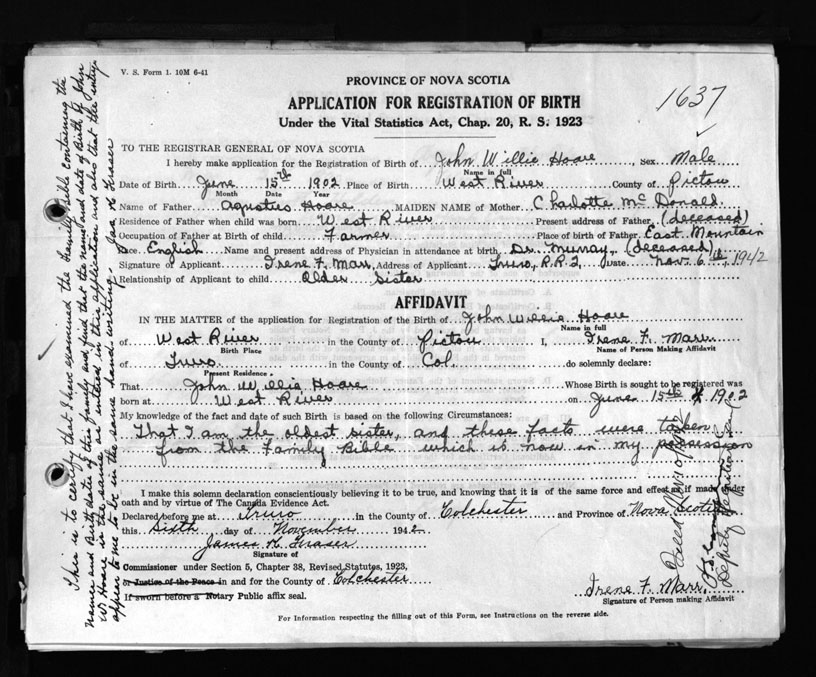 V. S. Form 1. 10M 6-41
PROVINCE OF NOVA SCOTIA
APPLICATION FOR REGISTRATION OF BIRTH
Under the Vital Statistics Act, Chap. 20, R. S. 1923
1637
TO THE REGISTRAR GENERAL OF NOVA SCOTIA
I hereby make application for the Registration of Birth of John Willie Hoare, Sex Male
Name in full
Date of Birth June 15th 1902 Place of Birth West River County of Pictou
Month Date Year
Name of Father Agustus Hoare MAIDEN NAME of Mother Charlotte McDonald
Residence of Father when child was born West River Present address of Father (deceased)
Occupation of Father at Birth of child Farmer Place of birth of Father East Mountain
Race English Name and present address of Physician in attendance at birth Dr. Murray, (deceased)
Signature of Applicant Irene F. Marr Address of Applicant Truro, R.R.2, Date Nov. 6th, 1942
Relationship of Applicant to child Older Sister
AFFIDAVIT
IN THE MATTER of the application for Registration of the Birth of John Willie Hoare
Name in full
of West River in the County of Pictou I, Irene F. Marr
Birth Place Name of Person Making Affidavit
of Truro in the County of Col. do solemnly declare:
Present Residence
That John Willie Hoare Whose Birth is sought to be registered was
born at West River on June 15th 1902
My knowledge of the fact and date of such Birth is based on the following Circumstances:
That I am the oldest sister, and these facts were taken
from the Family Bible which is now in my possession
I make this solemn declaration conscientiously believing it to be true, and knowing that it is of the same force and effect as if made under
oath and by virtue of The Canada Evidence Act.
Declared before me at Truro in the County of Colchester and Province of Nova Scotia
this sixth day of November 1942
James K. Fraser
Signature of
Commissioner under Section 5, Chapter 38, Revised Statutes, 1923,
or Justice of the Peace in and for the County of Colchester
If sworn before a Notary Public affix seal.
Irene F. Marr
Signature of Person making Affidavit
For Information respecting the filling out of this Form, see Instructions on the reverse side.
This is to certify that I have examined the Family Bible containing the
names and Birth dates of this family and find that the name and date of Birth of John
W Hoare is the same as entered in this application and also that the entry
appear to me to be in the same hand writing. Jas K Fraser
Deputy Registrar